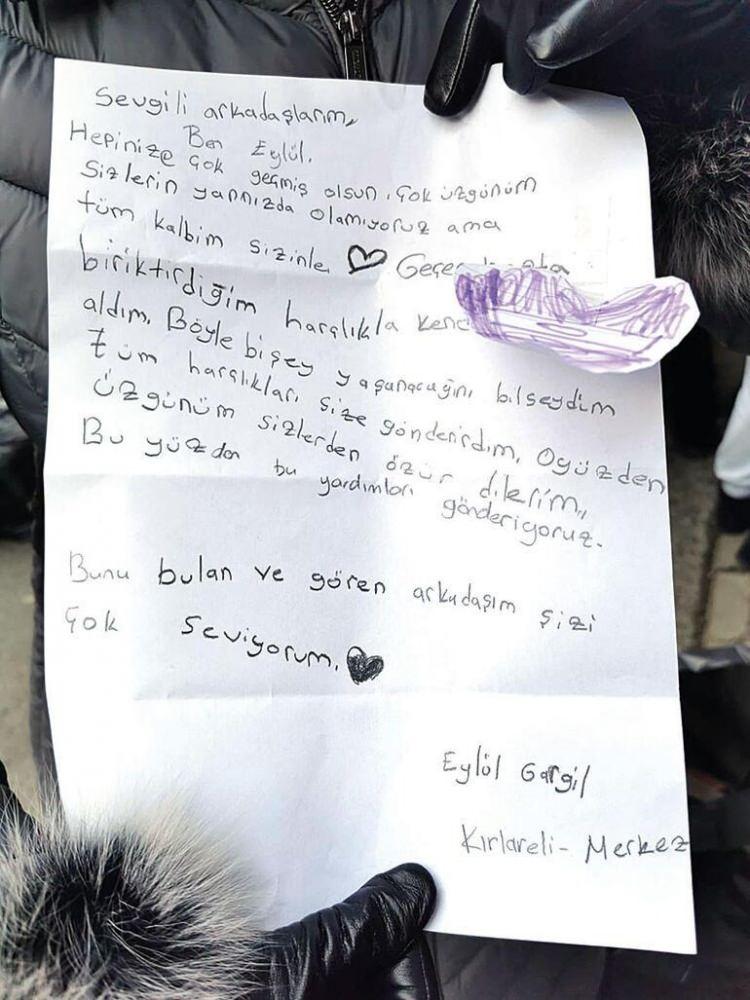 Sevgili arkadaşlarım,
Ben Eylül.
Hepinize çok geçmiş olsun, çok üzgünüm
Sizlerin yanınızda olamıyoruz ama
tüm kalbim sizinle ♡ Geçe
biriktirdiğim harçlıkla kend
aldım. Böyle bişey yaşanacağını bilseydim
tüm harçlıkları size gönderirdim, Oyüzden
üzgünüm sizlerden özür dilerim,,
Bu yüzden bu yardımları gönderiyoruz.
Bunu bulan ve gören arkadaşım sizi
çok seviyorum. ♥
Eylül Gargil
Kırlareli - Merkez